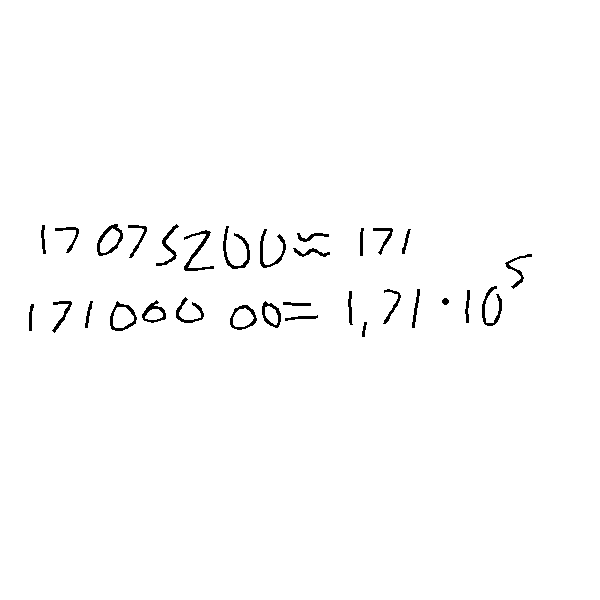 17 075200≈ 171
171000 00= 1,71 · 10⁵